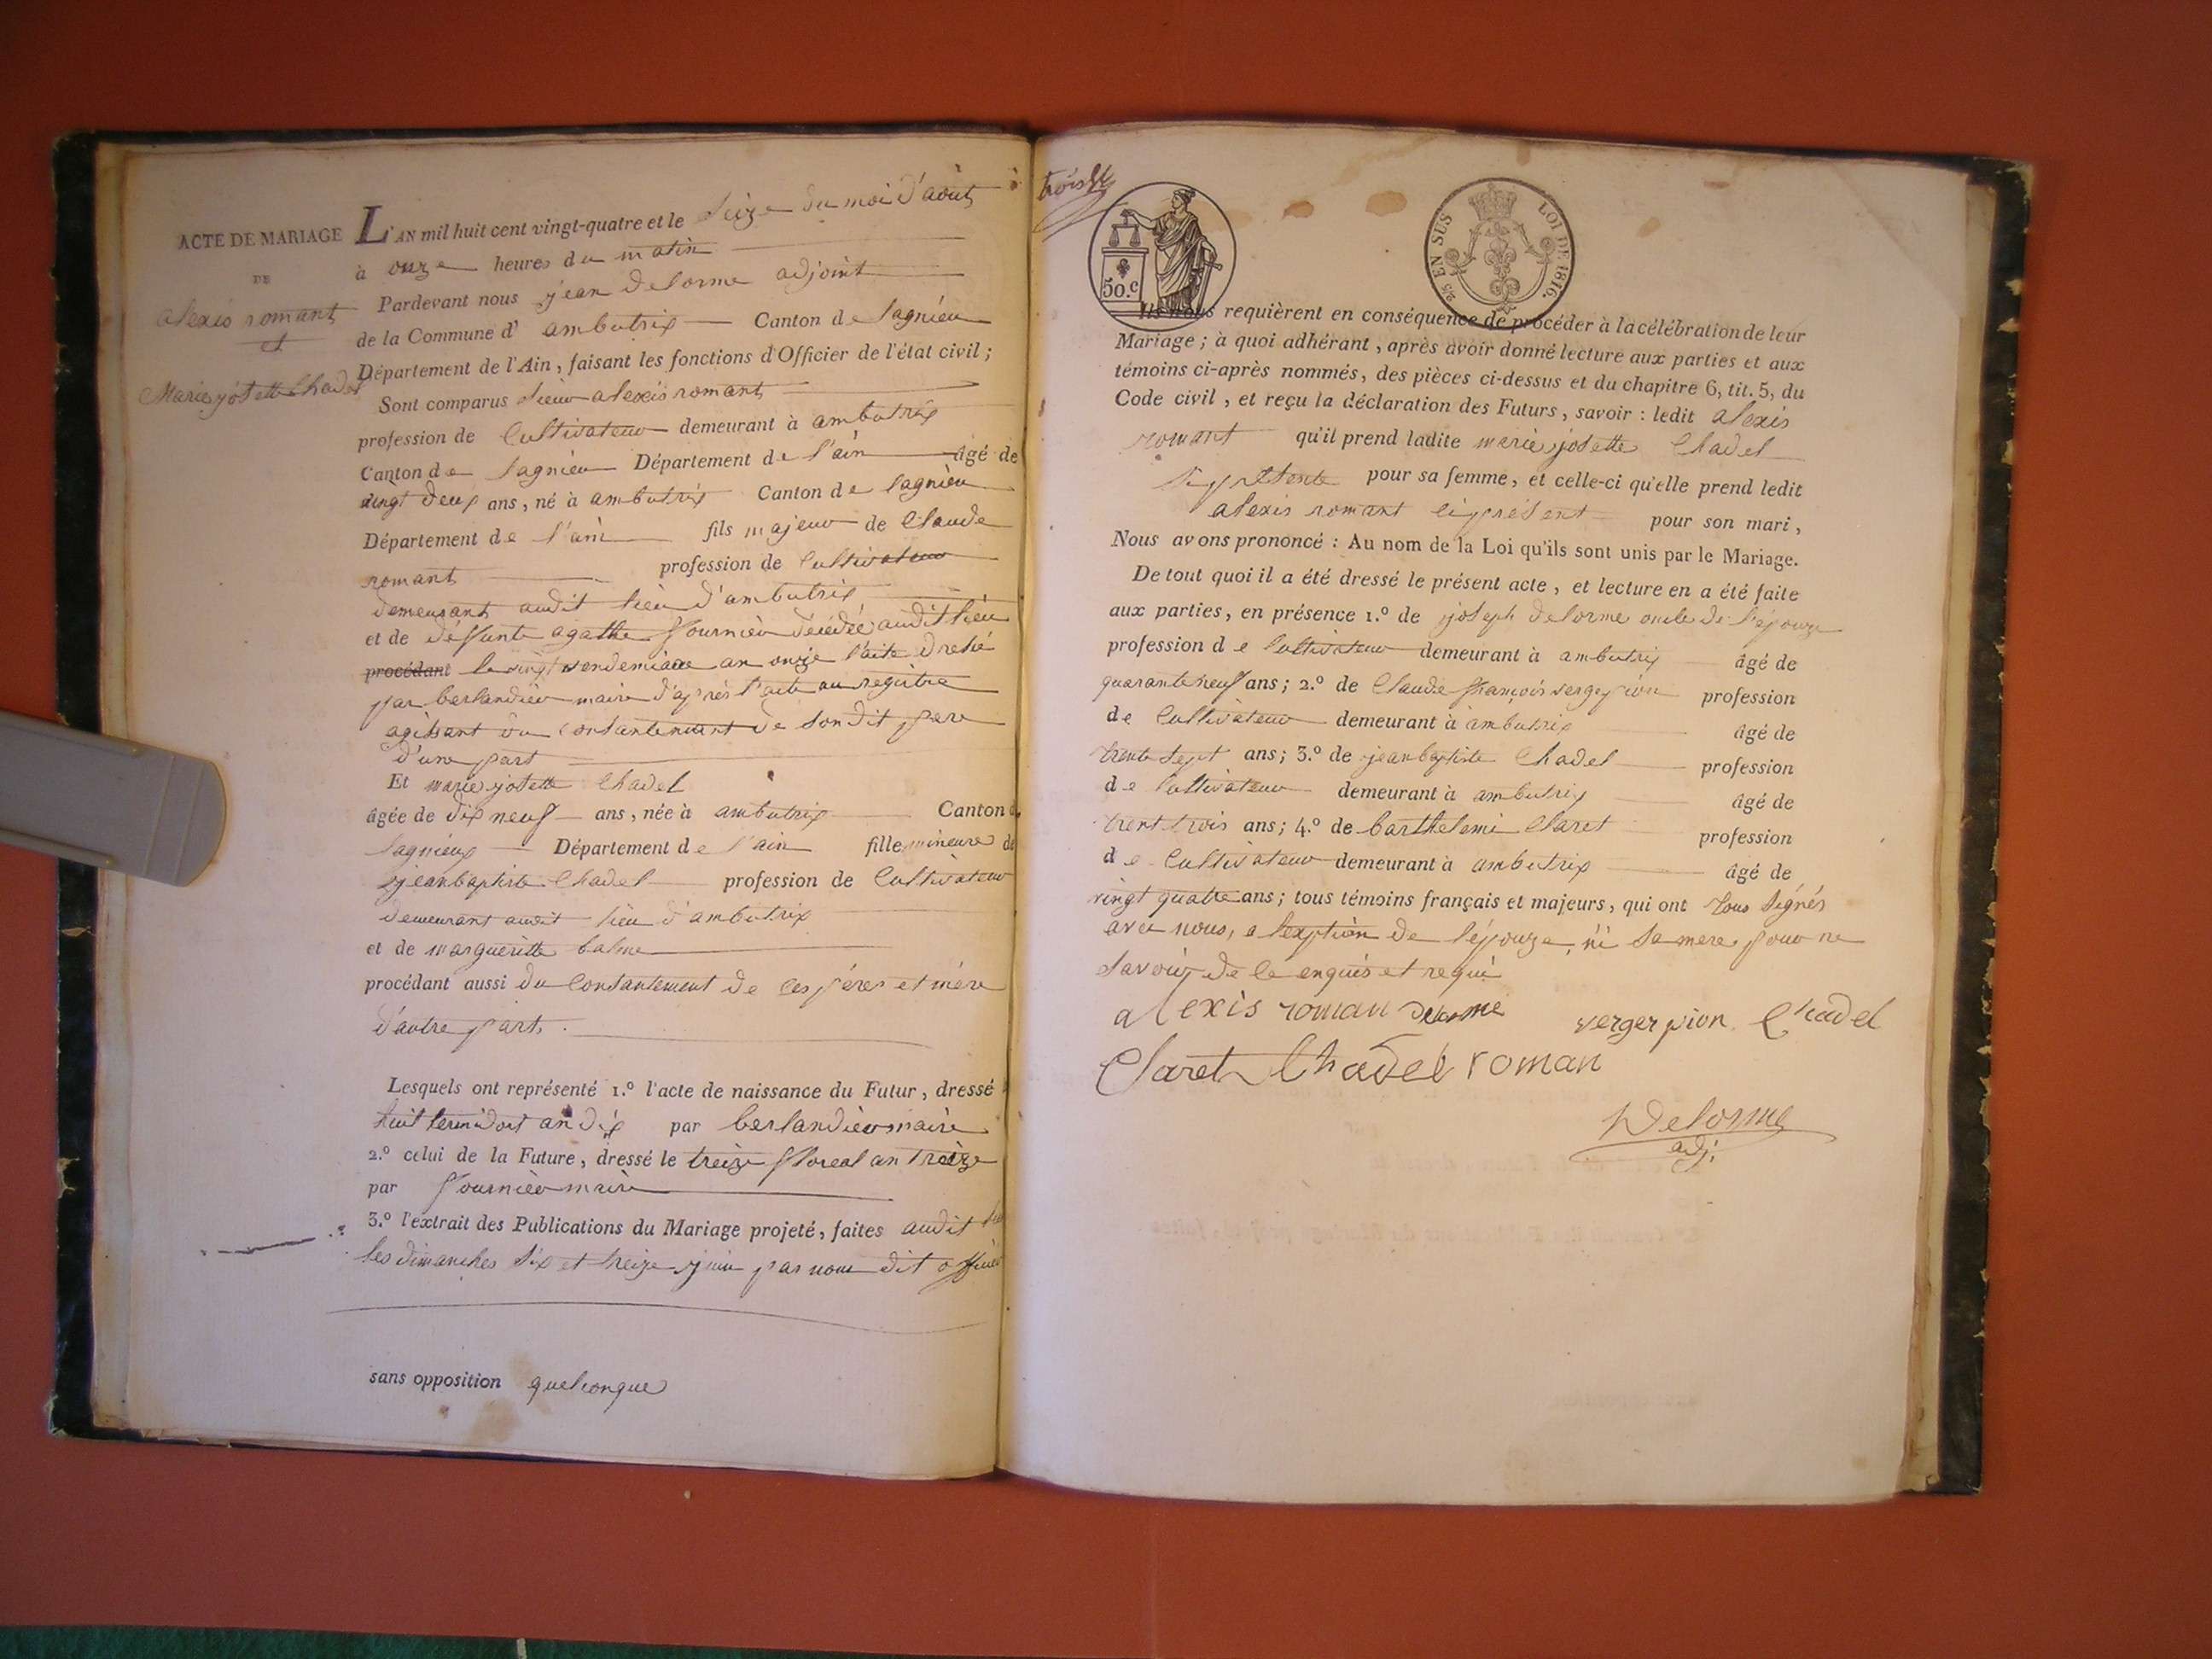 ACTE DE MARIAGE
DE
alexis romant
et
Marie josette Chadel
L'AN mil huit cent vingt-quatre et le Seize du moi d'août
à onze heures du matin
Pardevant nous jean delorme adjoint
de la Commune d' ambutrix Canton de lagnieu
Département de l'Ain, faisant les fonctions d'Officier de l'état civil;
Sont comparus sieur alexis romant
profession de Cultivateur demeurant à ambutrix
Canton de lagnieu Département de l'ain âgé de
vingt deux ans, né à ambutrix Canton de lagnieu
Département de l'ain fils majeur de Claude
romant profession de Cultivateur
demeurant audit lieu d'ambutrix
et de deffunte agathe fournier décédée audit lieu
procédant le vingt vendemiaire an onze l'acte dressé
par berlandier maire d'après l'acte au registre
agissant du consantement de son dit pere
d'une part
Et marie josette Chadel
âgée de dix neuf ans, née à ambutrix Canton de
lagnieux Département de l'ain fille mineure de
jean baptiste Chadel profession de Cultivateur
demeurant audit lieu d'ambutrix
et de margueritte balme
procédant aussi du Consantement de ces péres et mére
d'autre part.
Lesquels ont représenté 1.º l'acte de naissance du Futur, dressé
huit termidort an dix par berlandier maire
2.º celui de la Future, dressé le treize floreal an treize
par fournier maire
3.º l'extrait des Publications du Mariage projeté, faites audit lieu
les dimanches six et treize juin par nous dit officier
sans opposition quelconque
50.c
2/5 EN SUS
LOI DE 1816.
Ils nous requièrent en conséquence de procéder à la célébration de leur
Mariage; à quoi adhérant, après avoir donné lecture aux parties et aux
témoins ci-après nommés, des pièces ci-dessus et du chapitre 6, tit. 5, du
Code civil, et reçu la déclaration des Futurs, savoir: ledit alexis
romant qu'il prend ladite marie josette Chadel
pour sa femme, et celle-ci qu'elle prend ledit
alexis romant ci présent pour son mari,
Nous avons prononcé: Au nom de la Loi qu'ils sont unis par le Mariage.
De tout quoi il a été dressé le présent acte, et lecture en a été faite
aux parties, en présence 1.º de joseph delorme oncle de l'épouze
profession de Cultivateur demeurant à ambutrix âgé de
quarante neuf ans; 2.º de Claude françois vergerpion profession
de Cultivateur demeurant à ambutrix âgé de
trente sept ans; 3.º de jean baptiste Chadel profession
de Cultivateur demeurant à ambutrix âgé de
trent trois ans; 4.º de barthelemi Claret profession
de Cultivateur demeurant à ambutrix âgé de
vingt quatre ans; tous témoins français et majeurs, qui ont tous signés
avec nous, a lexption de l'épouze, ni sa mere pour ne
savoir de ce enquis et requi
alexis roman delorme vergerpion Chadel
Claret Chadel roman
Delorme
adj.